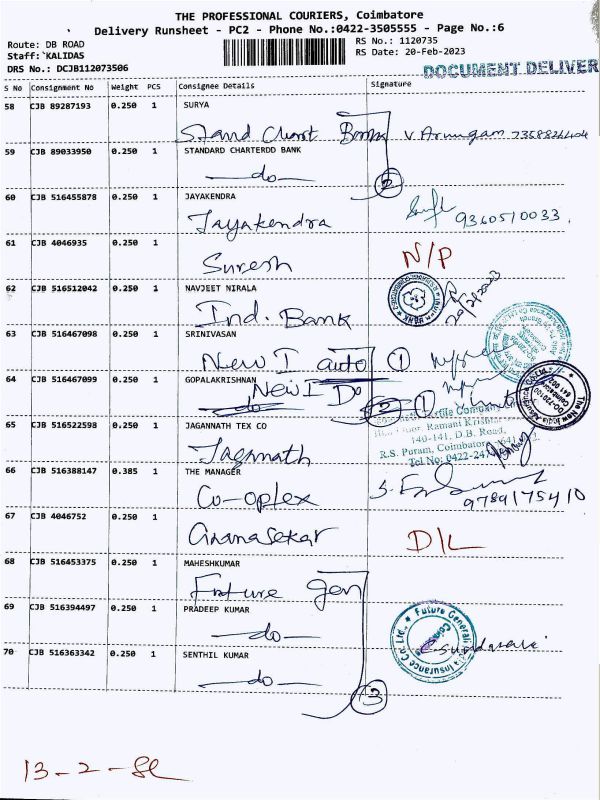 THE PROFESSIONAL COURIERS, Coimbatore
Delivery Runsheet - PC2 - Phone No.:0422-3505555 - Page No.:6
Route: DB ROAD
RS No.: 1120735
Staff: KALIDAS
RS Date: 20-Feb-2023
DRS No.: DCJB112073506
DOCUMENT DELIVER
S No Consignment No Weight PCS Consignee Details Signature
58 CJB 89287193 0.250 1 SURYA
Stand Chart Bank V. Arumugam
59 CJB 89033950 0.250 1 STANDARD CHARTERDD BANK
-do- 2
60 CJB 516455878 0.250 1 JAYAKENDRA
Jayakendra 9360510033.
61 CJB 4046935 0.250 1
Suresh N/P
62 CJB 516512042 0.250 1 NAVJEET NIRALA
Ind. Bank 20/2/2023
63 CJB 516467098 0.250 1 SRINIVASAN
New I auto 1
64 CJB 516467099 0.250 1 GOPALAKRISHNAN
New I Do 2 1
65 CJB 516522598 0.250 1 JAGANNATH TEX CO
Jagannath
140-141, D.B. Road,
R.S. Puram, Coimbatore
Tel No: 0422-247
66 CJB 516388147 0.385 1 THE MANAGER
Co-optex 9789175410
67 CJB 4046752 0.250 1
Gnanasekar D/L
68 CJB 516453375 0.250 1 MAHESHKUMAR
Future gen
69 CJB 516394497 0.250 1 PRADEEP KUMAR
-do-
Future Generali India Insurance Co. Ltd.,
70 CJB 516363342 0.250 1 SENTHIL KUMAR
-do- 3